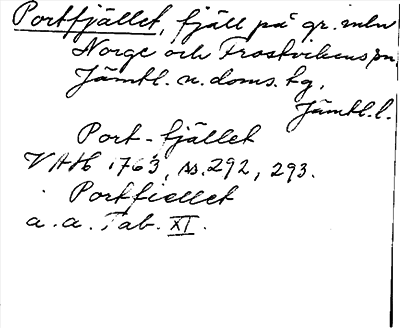 Portfjället, fjäll på gr. mln
Norge och Frostvikens sn
Jämtl. n. doms. tg,
Jämtl. l.
Port-fjället
VAH 1763, ss. 292, 293.
Portfiellet
a. a. Tab. XI.